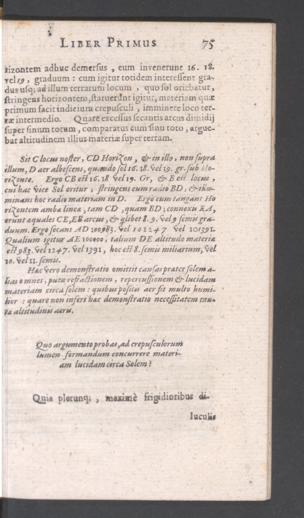 LIBER PRIMUS 75
rizontem adhuc demersus, eum invenerunt 16. 18.
vel 19, graduum: cum igitur totidem interessent gra-
dus usq; ad illum terrarum locum, quo sol oriebatur,
stringens horizontem, statuerunt igitur, materiam quæ
primum facit indicium crepusculi, imminere loco ter-
ræ intermedio. Quare excessus secantis arcus dimidij
super sinum totum, comparatus cum sinu toto, argue-
bat altitudinem illius materiæ super terram.
Sit C locus noster, CD Horizon, & in illo, non supra
illum, D aer albescens, quando sol 16. 18. vel 19. gr. sub Ho-
rizonte. Ergo CB est 16. 18. vel 19. Gr, & B est locus,
cui hac vice Sol oritur, stringens cum radio BD, & illu-
minans hoc radio materiam in D. Ergo cum tangant Ho
rizontem ambæ lineæ, tam CD, quam BD; connexa EA,
erunt æquales CE, EB arcus, & quilibet 8. 9. vel 9 semis gra-
duum. Ergo secans AD 100983. vel 101247 vel 101391.
Qualium igitur AE 100000, talium DE altitudo materiæ
est 983. vel 1247. vel 1391, hoc est 8. semis miliarium, vel
10. vel 11. semis.
Hæc vero demonstratio omittit causas præter solem a-
lias omnes, puta refractionem, repercussionem & lucidam
materiam circa solem: quibus positis aer fit multo humi-
lior: quare non infert hæc demonstratio necessitatem tan-
tæ altitudinis aeris.
Quo argumento probas, ad crepusculorum
lumen formandum concurrere materi-
am lucidam circa Solem?
Quia plerunq;, maximè frigidioribus di-
luculis